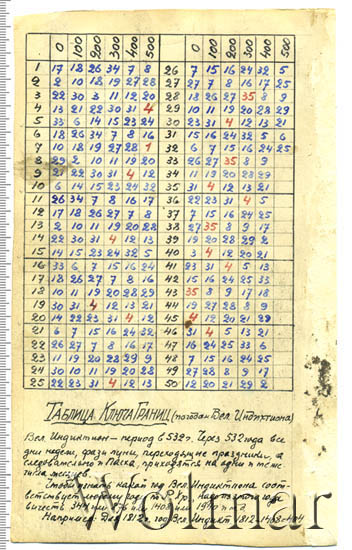 0 100 200 300 400 500 0 100 200 300 400 500
1 17 18 26 34 7 8 26 7 15 16 24 32 5
2 2 10 18 19 27 28 27 27 7 8 16 17 25
3 22 30 3 11 12 20 28 18 26 27 35 8 9
4 13 21 22 30 31 4 29 10 11 19 20 28 29
5 33 6 14 15 23 24 30 23 31 4 12 13 21
6 18 26 34 7 8 16 31 15 16 24 32 5 6
7 10 18 19 27 28 1 32 6 7 15 16 24 25
8 29 2 10 11 19 20 33 26 27 35 8 9
9 21 22 30 31 4 12 34 11 19 20 28 29
10 6 14 15 23 24 32 35 31 4 12 13 21
11 26 34 7 8 16 17 36 22 23 31 4 5
12 17 18 26 27 7 8 37 7 15 16 24 25
13 2 10 11 19 20 28 38 27 35 8 9 17
14 22 30 31 4 12 13 39 19 20 28 29 2
15 14 15 23 24 32 5 40 3 4 12 20 21
16 33 6 7 15 16 24 41 23 31 4 5 13
17 18 26 27 7 8 16 42 15 16 24 25 33
18 10 11 19 20 28 29 43 35 8 9 17 18
19 30 31 4 12 13 21 44 19 27 28 8 9
20 14 22 23 31 4 12 45 4 12 20 21 29
21 6 7 15 16 24 32 46 31 4 5 13 21
22 26 27 7 8 16 17 47 16 24 25 33 6
23 11 19 20 28 29 9 48 7 15 16 24 25
24 30 10 11 19 20 28 49 27 28 8 9 17
25 22 23 31 4 12 13 50 12 20 21 29 2
Таблица Ключа Границ (по годам Вел. Индиктиона)
Вел. Индиктион – период в 532 г. Через 532 года все
дни недели, фазы луны, переходящие праздники, а
следовательно и Пасха, приходятся на одни и те же
числа месяцев.
Чтобы узнать какой год Вел. Индиктиона соот-
ветствует году от Р. Хр. надо из этого года
вычесть 344 или 1408 или 1940 и т.д.
Например: Для 1812 г. год Вел. Индикт. 1812-1408=404
Wolmar